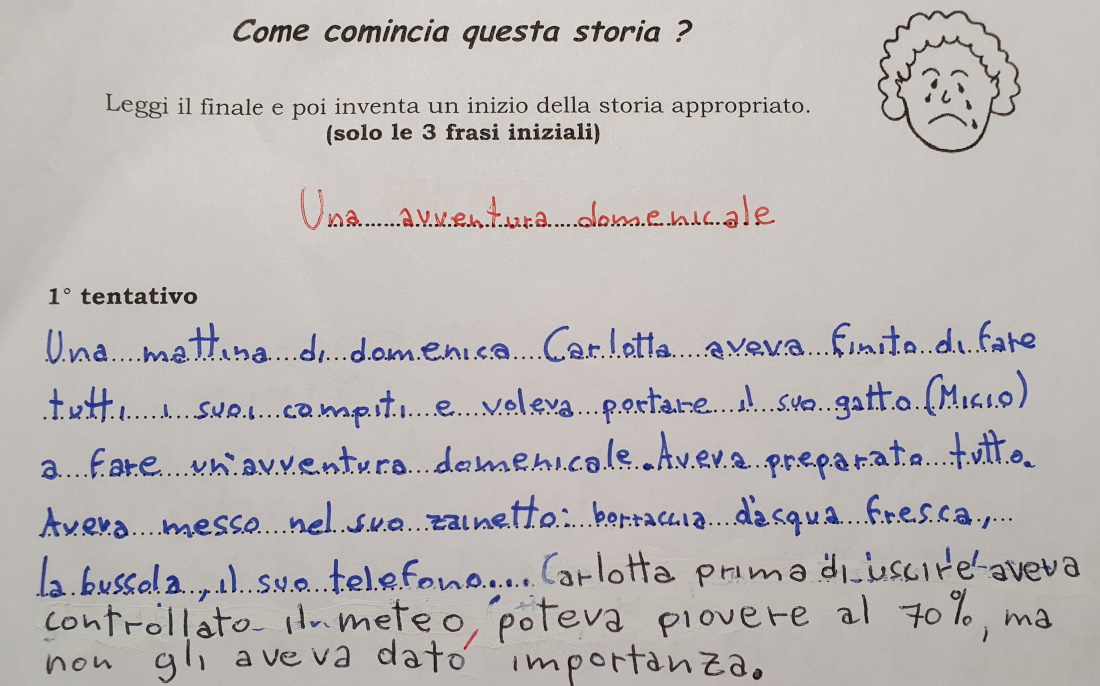 Come comincia questa storia ?
Leggi il finale e poi inventa un inizio della storia appropriato.
(solo le 3 frasi iniziali)
Una avventura domenicale
1° tentativo
Una mattina di domenica Carlotta aveva finito di fare
tutti i suoi compiti e voleva portare il suo gatto (Micio)
a fare un'avventura domenicale. Aveva preparato tutto.
Aveva messo nel suo zainetto: borraccia d'acqua fresca,
la bussola, il suo telefono.... Carlotta prima di uscire aveva
controllato il meteo, poteva piovere al 70%, ma
non gli aveva dato importanza.